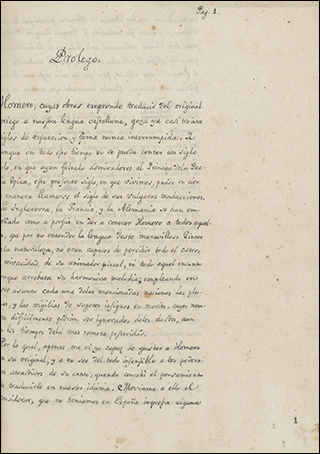 Pag. 1.
Prologo.
Homero, cuyas obras emprendo traducir del original
riego a nuestra lengua castellana, goza ya casi treinta
iglos de reputacion, y fama nunca interrumpida. I
unque en todo este tiempo no se pueda contar un siglo
olo, en que ayan faltado admiradores al Principe dela Poe
a épica, este presente siglo, en que vivimos, puede en cier
manera llamarse el siglo de sus vulgares traducciones.
a Inglaterra, la Francia, y la Alemania se han em
eñado como a porfia en dar a conocer Homero a todos aquel
s, que por no entender la lengua deste maravilloso Pintor
e la naturaleza, no eran capaces de percibir todo el estro,
vivacidad de su animador pincel, ni todo aquel encanto
que arrebata su harmoniosa melodia; empleando en
te asunto cada una delas mencionadas naciones las plu
s, y las vigilias de sugetos insignes en merito, cuyos nom
dificilmente podran ser ignorados delos doctos, aun
los tiempos dela mas remota posteridad.
Por lo qual, apenas me vi yo capaz de gustar a Homero
n su original, y a no ser del todo insensible a los podero
s atractivos de su canto, quando concebi el pensamiento
e traducirle en nuestro idioma. Moviame a ello el
onsiderar, que no teniamos en España impresa alguna
1